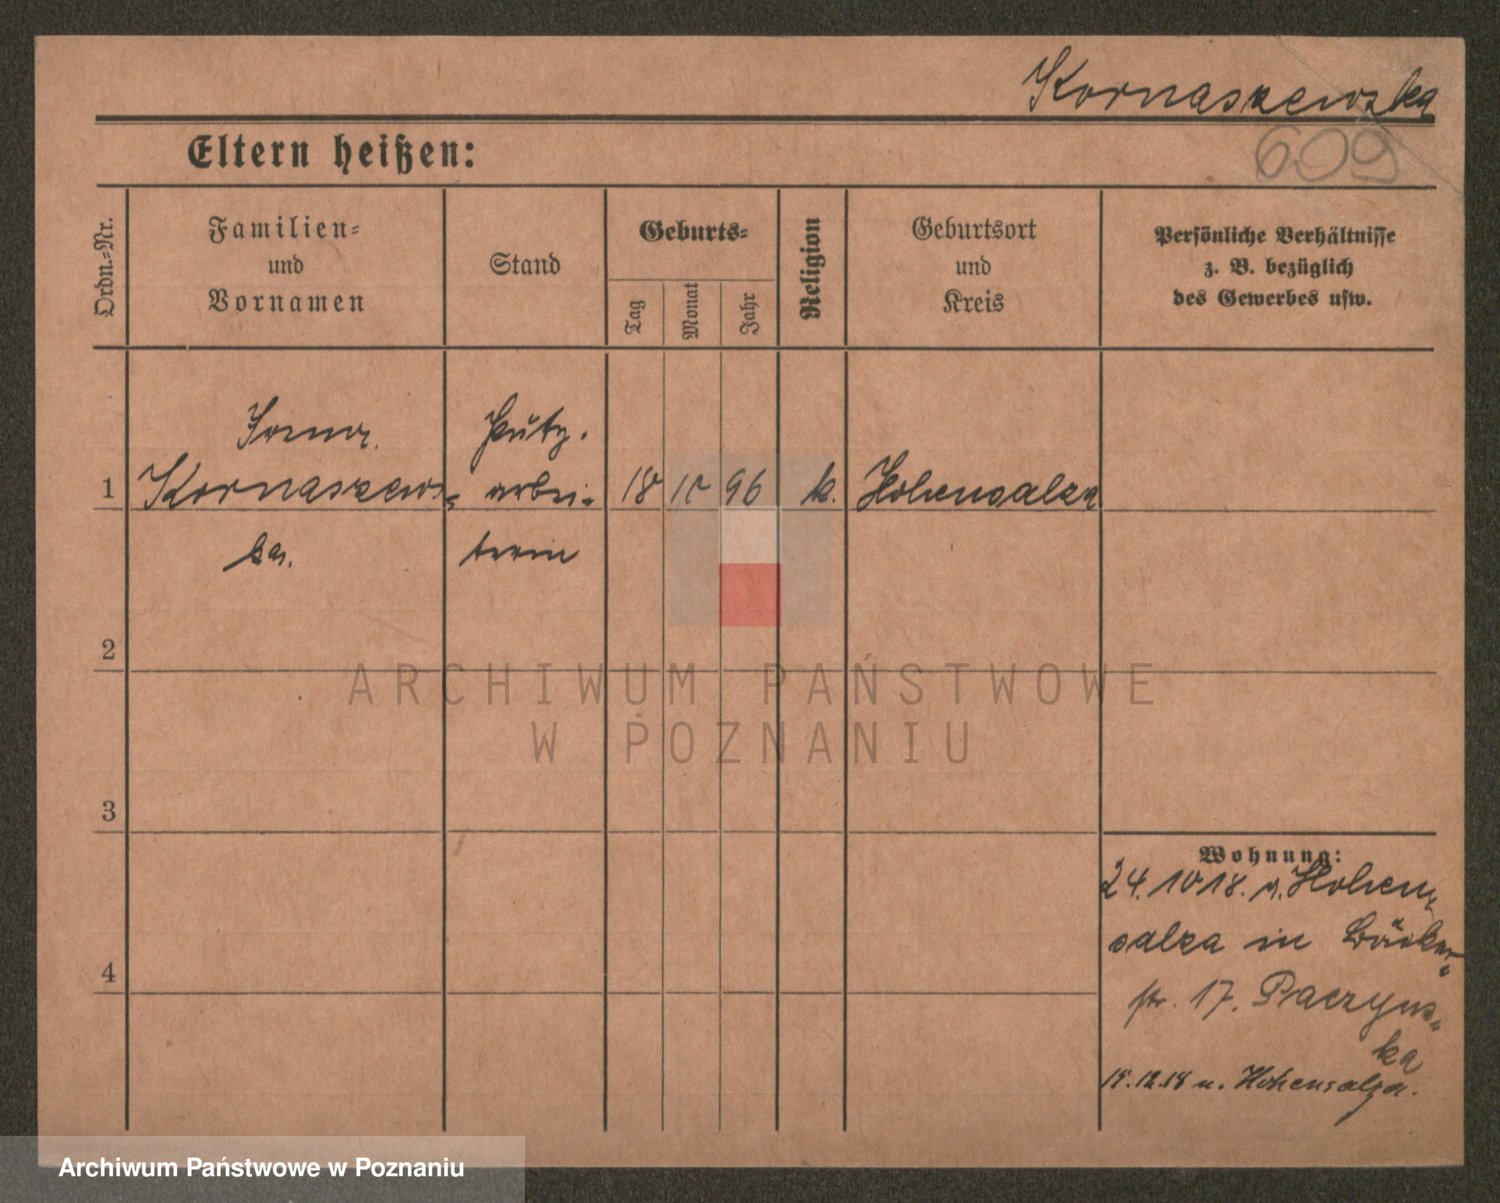 Kornaszewska
609
Eltern heißen:
Ordn.-Nr.
Familien-
und
Vornamen
Stand
Geburts-
Tag
Monat
Jahr
Religion
Geburtsort
und
Kreis
Persönliche Verhältnisse
z. B. bezüglich
des Gewerbes usw.
Putz-
1 Kornaszews- arbei- 18 10 96 k. Hohensalza
ka. terin
2
3
4
Wohnung:
24.10 18. v. Hohen-
salza in Bäcker-
str. 17. Paczyns-
ka
12.18 n. Hohensalza.
ARCHIWUM PAŃSTWOWE
W POZNANIU
Archiwum Państwowe w Poznaniu